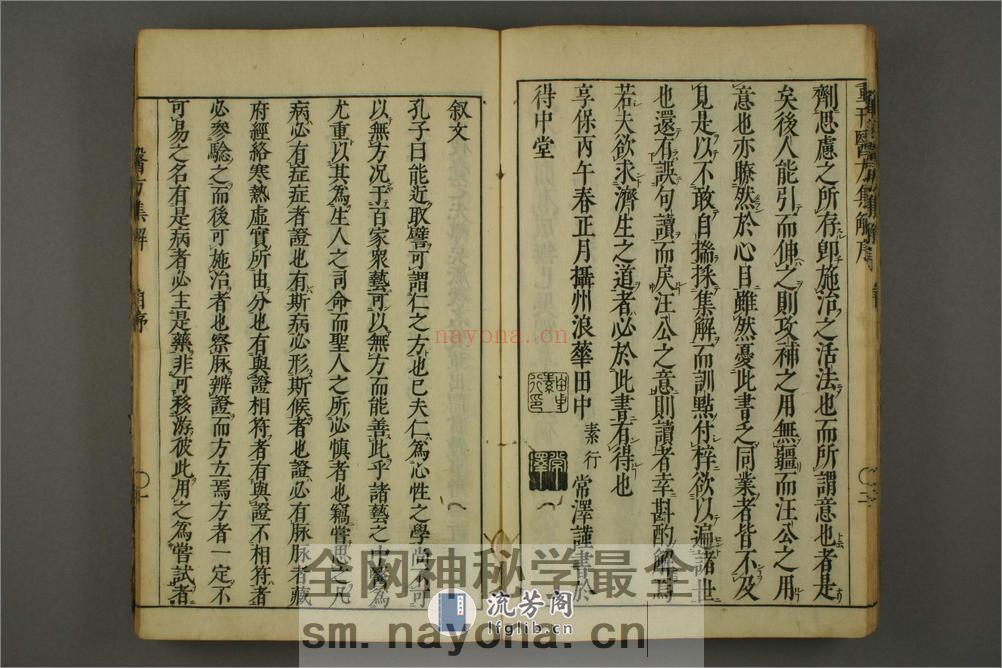 劑思慮之所存卽施治之活法也而所謂意也者是
矣後人能引而伸之則攻補之用無疆而汪公之用
意也亦瞭然於心目雖然憂此書之同業者皆不及
見是以不敢自揣採集解而訓點付梓欲以遍諸世
也還有誤句讀而戾汪公之意則讀者幸斟酌解焉
若夫欲求濟生之道者必於此書有得也
享保丙午春正月攝州浪華田中素行常澤謹書於
得中堂
叙文
孔子曰能近取譬可謂仁之方也已夫仁為心性之學尚不可
以無方况于百家衆藝可以無方而能善此乎諸藝之中醫為
尤重以其為生人之司命而聖人之所必慎者也竊嘗思之凡
病必有症症者證也有斯病必形斯候者也證必有脉脉者藏
府經絡寒熱虛實所由分也有與證相符者有與證不相符者
必參驗之而後可施治者也察脉辨證而方立焉方者一定不
可易之名有是病者必主是藥非可移游彼此用之為嘗試者
醫方集解
自序
nayona.cn
全网神秘学最全
流芳阁
lfglib.cn
sm.nayona.cn